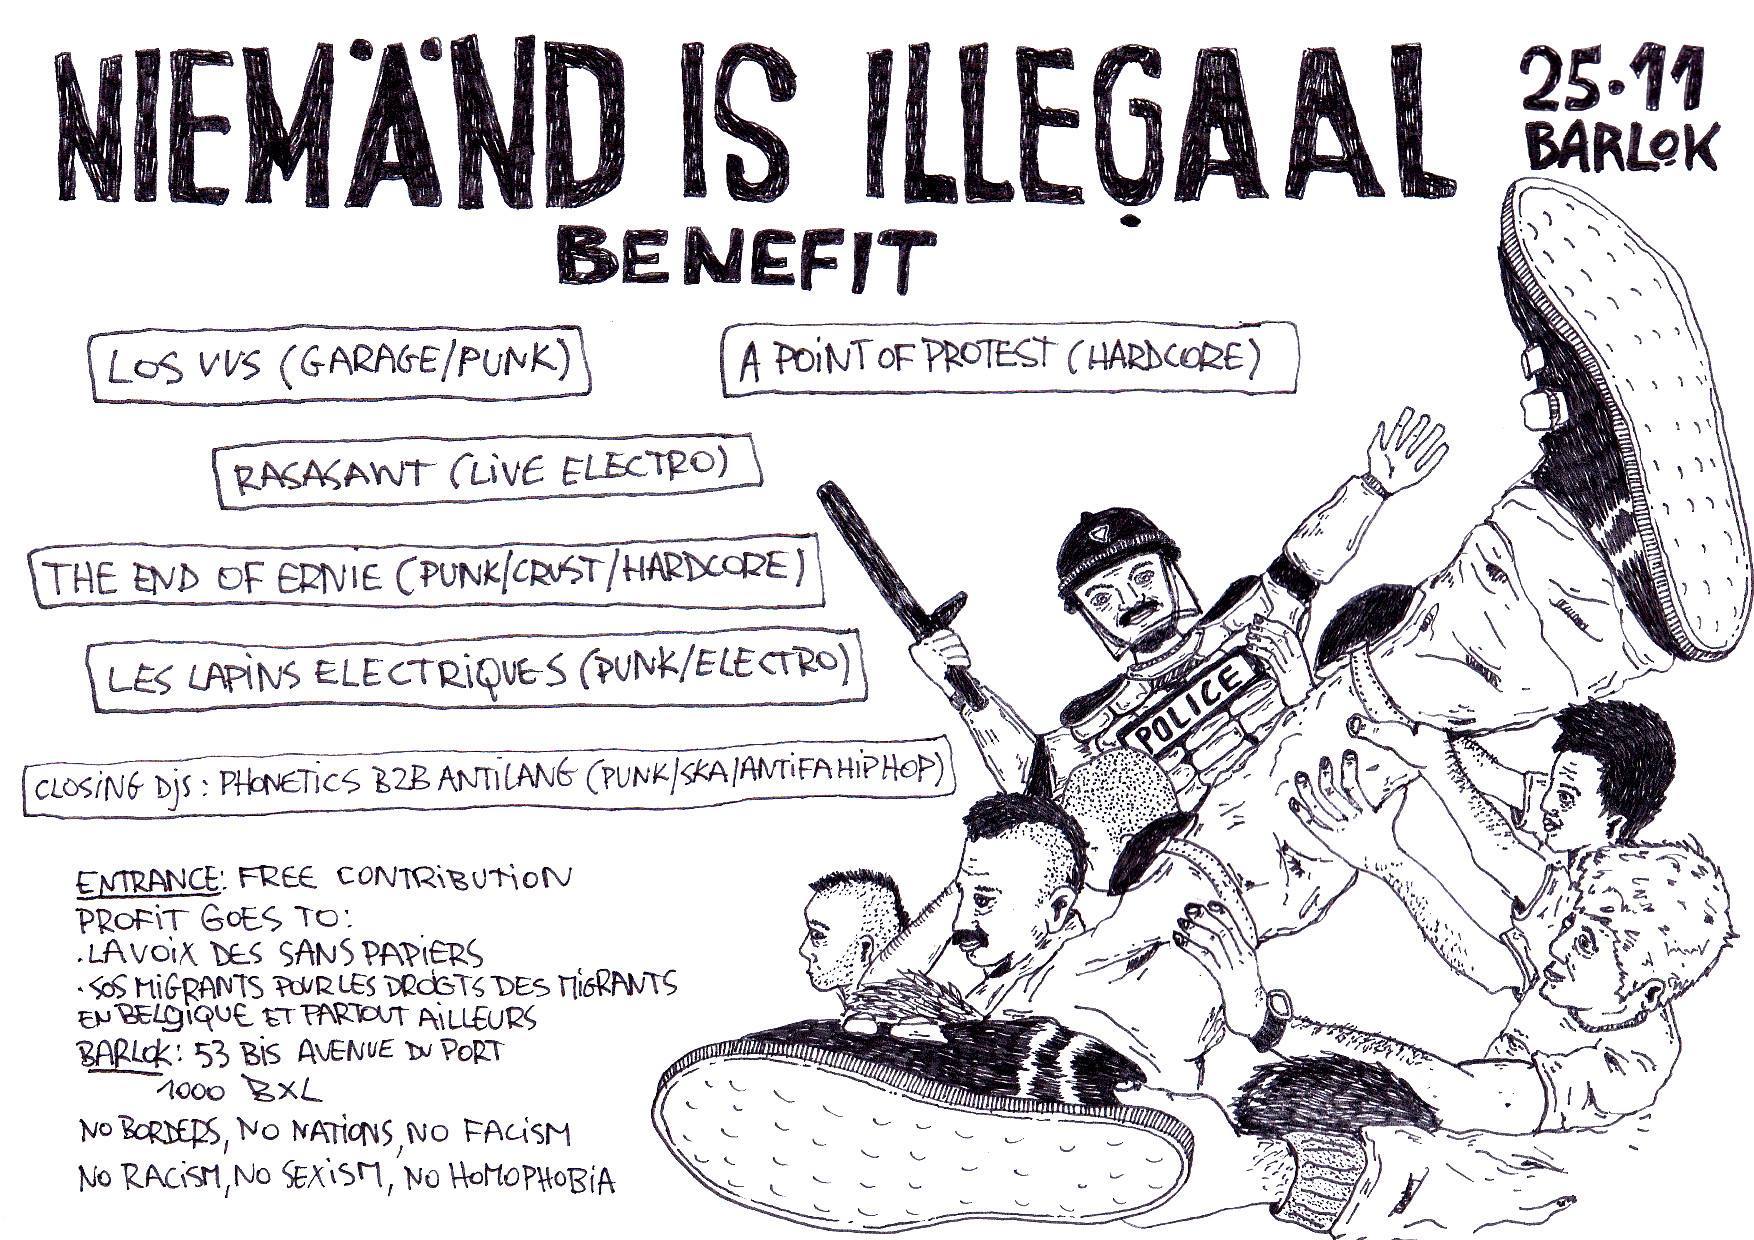 NIEMÄND IS ILLEGAAL
25.11
BARLOK
BENEFIT
LOS VVS (GARAGE/PUNK)
A POINT OF PROTEST (HARDCORE)
RASASAWT (LIVE ELECTRO)
THE END OF ERNIE (PUNK/CRUST/HARDCORE)
LES LAPINS ELECTRIQUES (PUNK/ELECTRO)
CLOSING DJS : PHONETICS B2B ANTILANG (PUNK/SKA/ANTIFAHIPHOP)
POLICE
ENTRANCE: FREE CONTRIBUTION
PROFIT GOES TO:
. LA VOIX DES SANS PAPIERS
. SOS MIGRANTS POUR LES DROITS DES MIGRANTS
EN BELGIQUE ET PARTOUT AILLEURS
BARLOK: 53 BIS AVENUE DU PORT
1000 BXL
NO BORDERS, NO NATIONS, NO FACISM
NO RACISM, NO SEXISM, NO HOMOPHOBIA